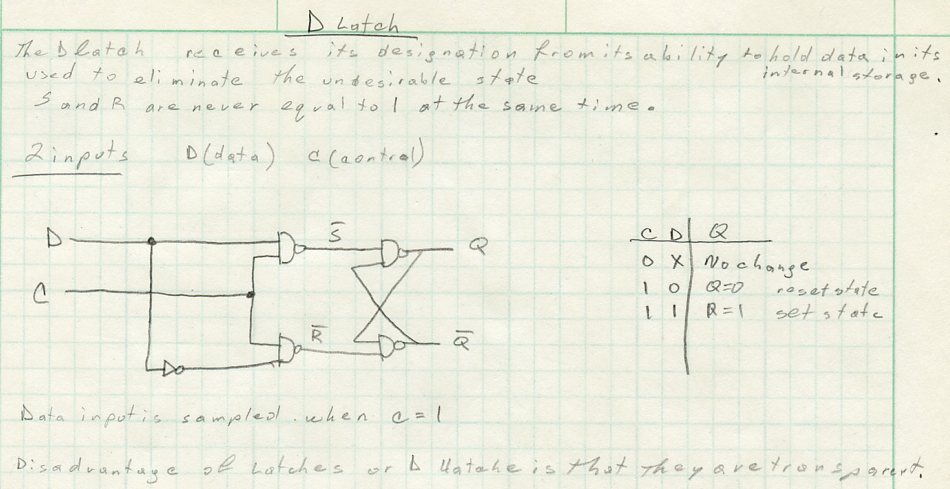 D Latch
The D latch receives its designation from its ability to hold data in its
internal storage.
used to eliminate the undesirable state
S and R are never equal to 1 at the same time.
2 inputs D (data) C (control)
D
C
S̅
R̅
Q
Q̅
C D Q
0 X No change
1 0 Q=0 reset state
1 1 Q=1 set state
Data input is sampled when C=1
Disadvantage of Latches or D is that they are transparent.